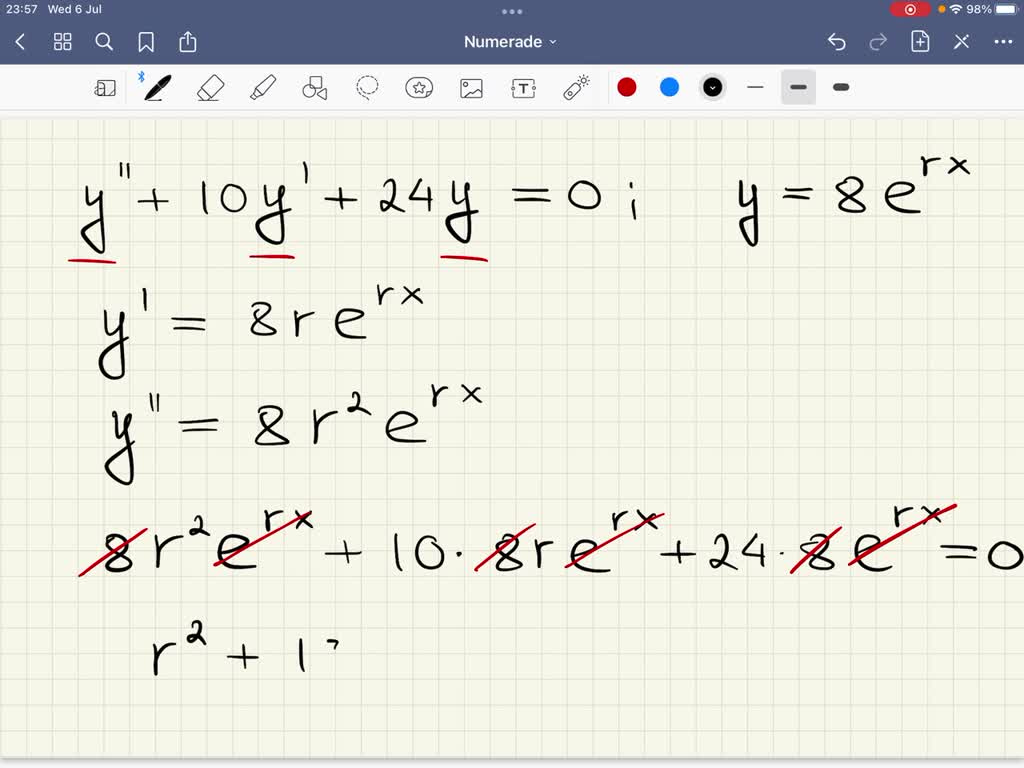 23:57 Wed 6 Jul 98%
Numerade
T
y" + 10y' + 24y = 0 ; y = 8e^rx
y' = 8re^rx
y" = 8r²e^rx
8r²e^rx + 10·8re^rx + 24·8e^rx = 0
r² + 1